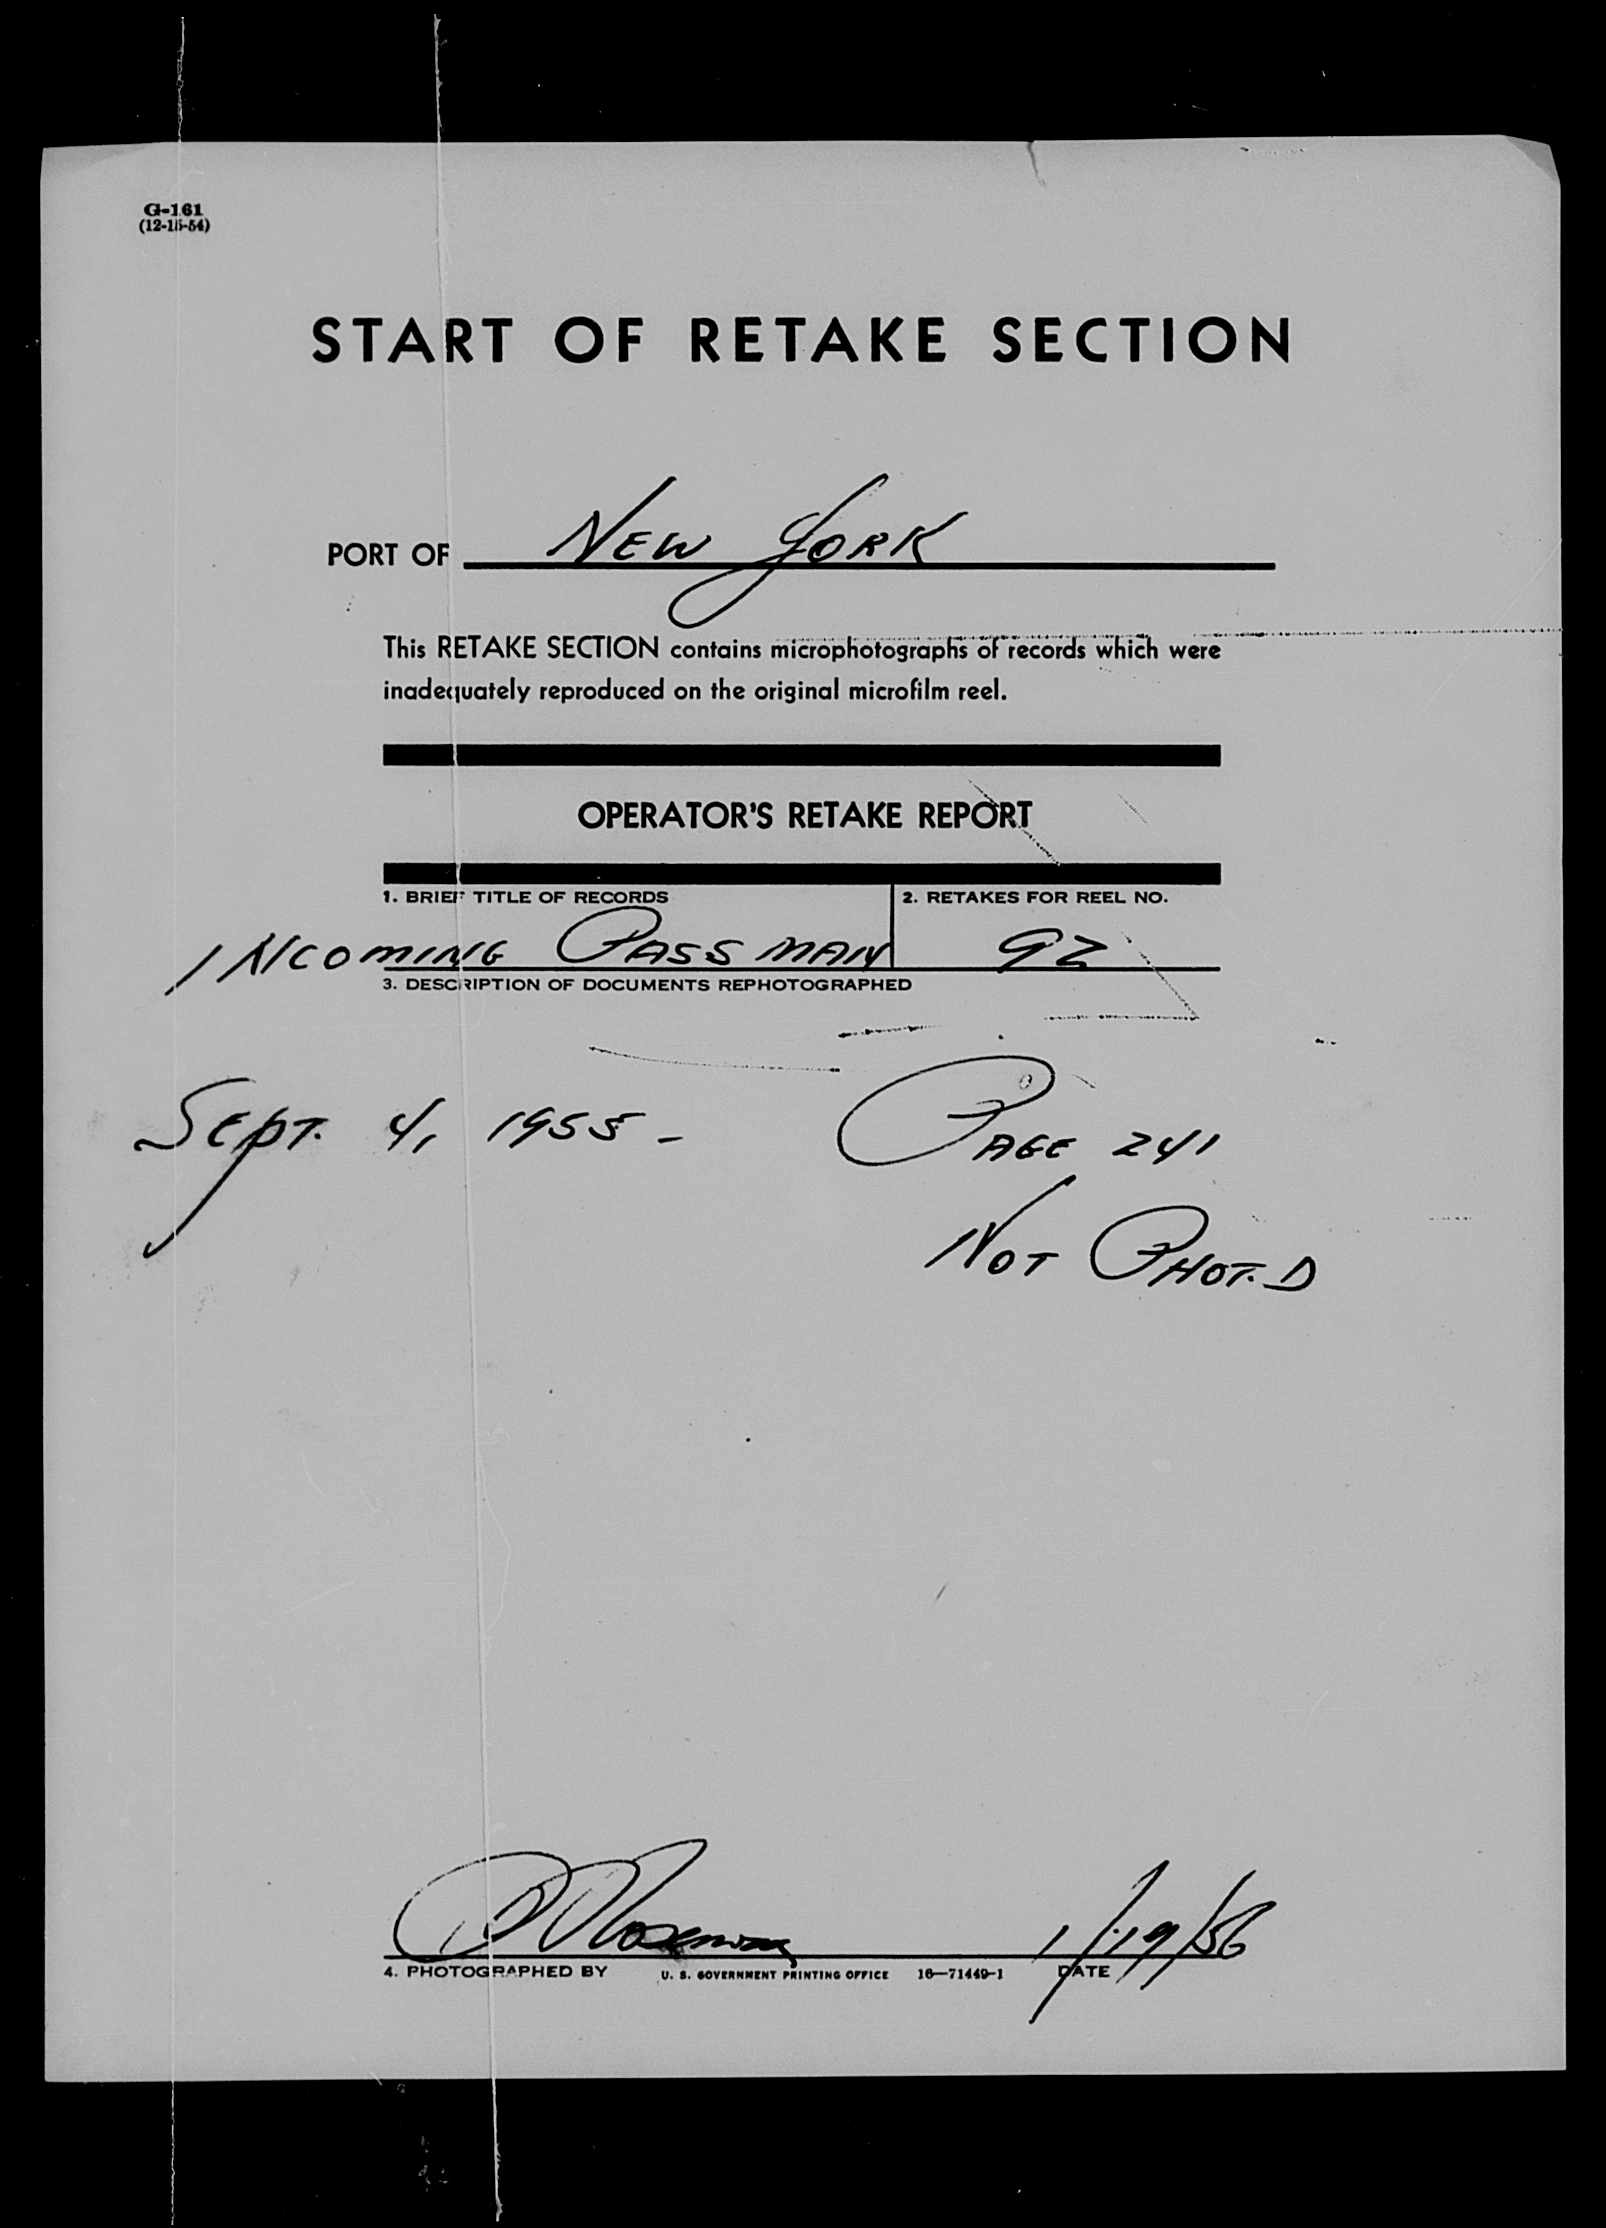 G-161
(12-15-54)
START OF RETAKE SECTION
PORT OF NEW YORK
This RETAKE SECTION contains microphotographs of records which were
inadequately reproduced on the original microfilm reel.
OPERATOR'S RETAKE REPORT
1. BRIEF TITLE OF RECORDS 2. RETAKES FOR REEL NO.
INCOMING PASS MAN 92
3. DESCRIPTION OF DOCUMENTS REPHOTOGRAPHED
SEPT. 4, 1955 - PAGE 241
NOT PHOT.D
1/19/56
4. PHOTOGRAPHED BY U. S. GOVERNMENT PRINTING OFFICE 16—71449-1 DATE